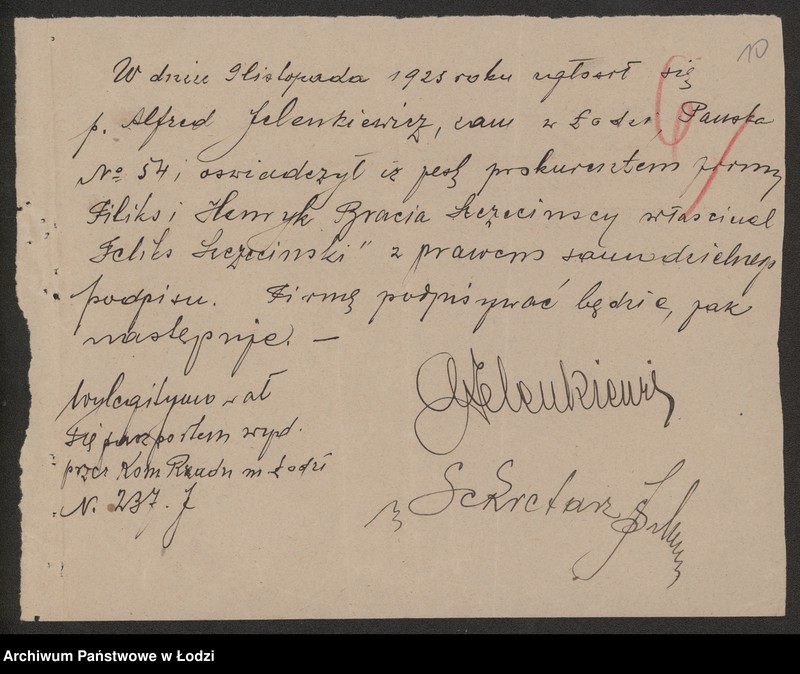 10
W dniu 9 listopada 1923 roku zgłosił się
p. Alfred Jelenkiewicz, zam w Łodzi, Pańska
No 54 i oswiadczył iż jest prokurentem firmy
Filiks i Henryk Bracia Szczecinscy właściciel
Feliks Szczecinski" z prawem samodzielnego
podpisu. Firmę podpisywać będzie, jak
następuje. —
AJelenkiewicz
Wylegitymował
się paszportem wyd.
przez Kom Rządu m Łodzi
N. 237. J
Sekretarz
Archiwum Państwowe w Łodzi